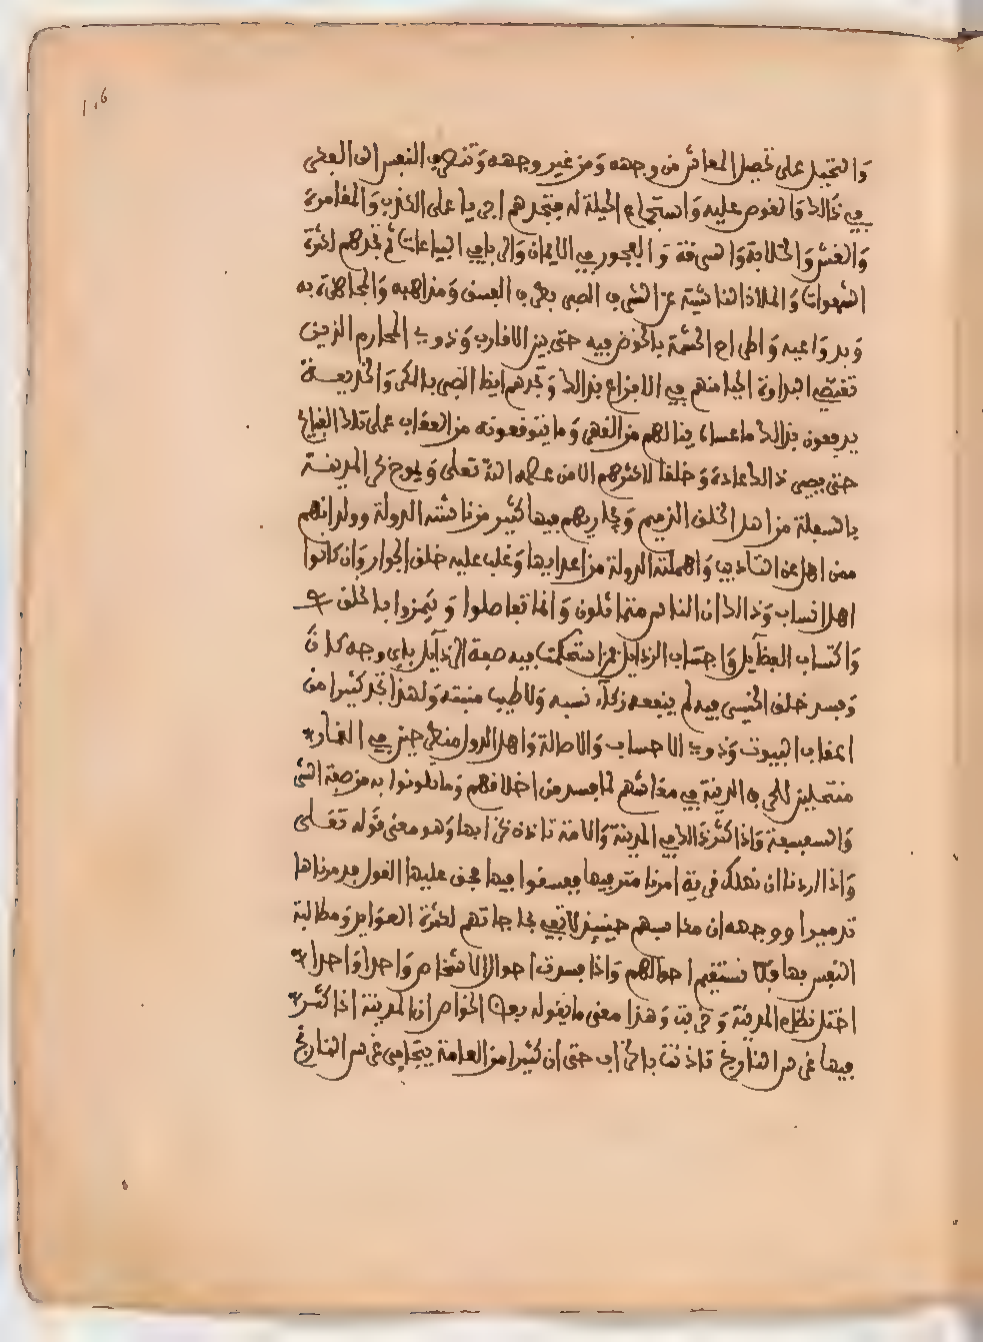 ١٠٦
وَالتحيل على تحصيل المعاش من وجهه وَمن غير وجهه وَتنصرف النفس الى الفكر
في ذَالك وَالغوص عليه وَاستجماع الحيلة له فتجدهم اجرياء على الكذب وَالمقامرة
وَالغش وَالخلابة وَالسرقة وَالفجور في الايمان وَالربا في البياعات ثم تجدهم لكثرة
الشهوات وَالملاذ الناشية عن الترف ابصر بطرق الفسق وَمذاهبه وَالمجاهرة به
وَبدوَاعيه وَاطراح الحشمة بالخوض فيه حتى بين الاقارب وَذوي المحارم الذين
تقتضي البداوة الحيا منهم في الاقذاع بذالك وَتجدهم ايضا ابصر بالمكر وَالخديعة
يدفعون بذالك ما عساه ينالهم من القهر وَما يتوقعونه من العقاب على تلك القبايح
حتى يصير ذالك عادة وَخلقا لاكثرهم الا من عصمه الله تعلى وَيموج بحر المدينة
بالسفلة من اهل الخلق الذميم وَيجاريهم فيها كثير من ناشئة الدولة وولدانهم
ممن اهمل عن التاديب وَاهملته الدولة من عدادها وَغلب عليه خلق الجوار وَان كانوا
اهل انساب وَذالك ان الناس متماثلون وَانما تفاضلوا وَتميزوا بالخلق
وَاكتساب الفضآيل وَاجتناب الرذايل فمن استحكمت فيه صبغة الرذآيل باي وجه كان
وَفسد خلق الخير فيه لم ينفعه زكآء نسبه وَلا طيب منبته وَلهذا تجد كثيرا من
اعقاب البيوت وَذوي الاحساب وَالاصالة وَاهل الدول منطرحين في الغمار
منتحلين للحرف الدنية في معاشهم لما فسد من اخلاقهم وَما تلونوا به من صبغة الشر
وَالسفسفة وَاذا كثر ذَالك في المدينة وَالامة تاذن بخرابها وَهو معنى قوله تعلى
وَاذا اردنا ان نهلك قرية امرنا مترفيها ففسقوا فيها فحق عليها القول فدمرناها
تدميرا ووجهه ان مكاسبهم حينيذ لا تفي بحاجاتهم لكثرة العوَايد وَمطالبة
النفس بها فلا تستقيم احوالهم وَاذا فسدت احوال الاشخاص وَاحدا وَاحدا
اختل نظام المدينة وَخربت وَهذا معنى ما يقوله بعض الخواص ان المدينة اذا كثر
فيها غرس النارنج تاذنت بالخراب حتى ان كثيرا من العامة يتحامى غرس النارنج